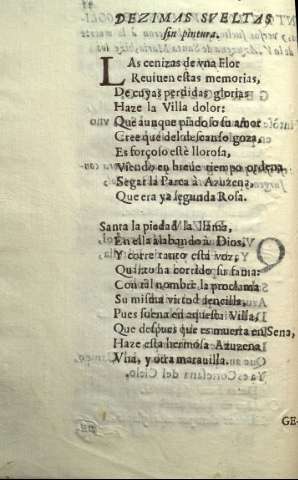 DEZIMAS SVELTAS
sin pintura.
LAs cenizas de vna Flor
Reviuen estas memorias,
De cuyas perdidas glorias
Haze la Villa dolor:
Que aunque piadoso su amor
Cree que del descanso goza,
Es forçoso estè llorosa,
Viendo en breue tiempo ordena
Segar la Parca à Azuzena,
Que era ya segunda Rosa.
Santa la piedad la llama,
En ella alabando à Dios,
Y corre tanto esta voz,
Quanto ha corrido su fama:
Con tal nombre la proclama
Su misma virtud sencilla,
Pues suena en aquesta Villa,
Que despues que es muerta en Sena,
Haze esta hermosa Azuzena
Vna, y otra marauilla.
GE-